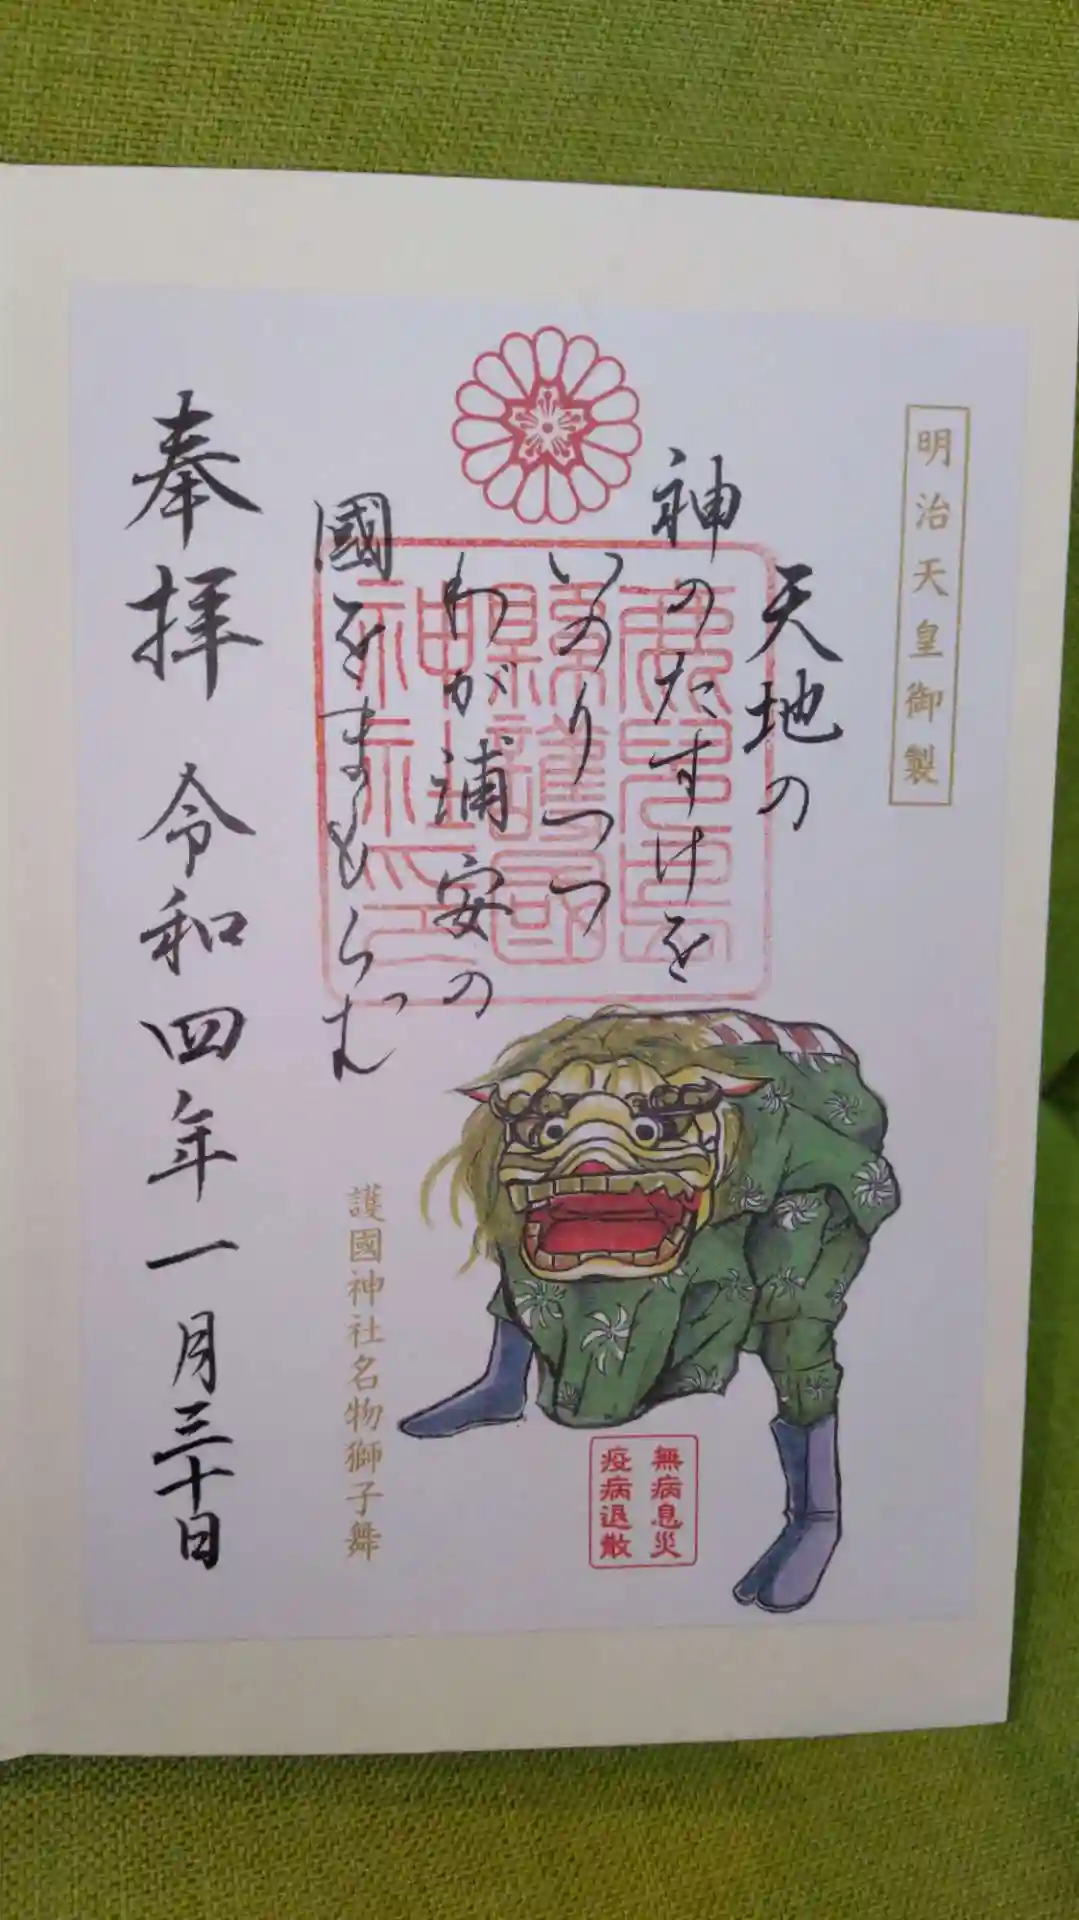 明治天皇御製
天地の
神のたすけを
いのりつつ
わが浦安の
國をまもらむ
鹿兒島
縣護國
神社印
奉拝 令和四年一月三十日
護國神社名物獅子舞
無病息災
疫病退散